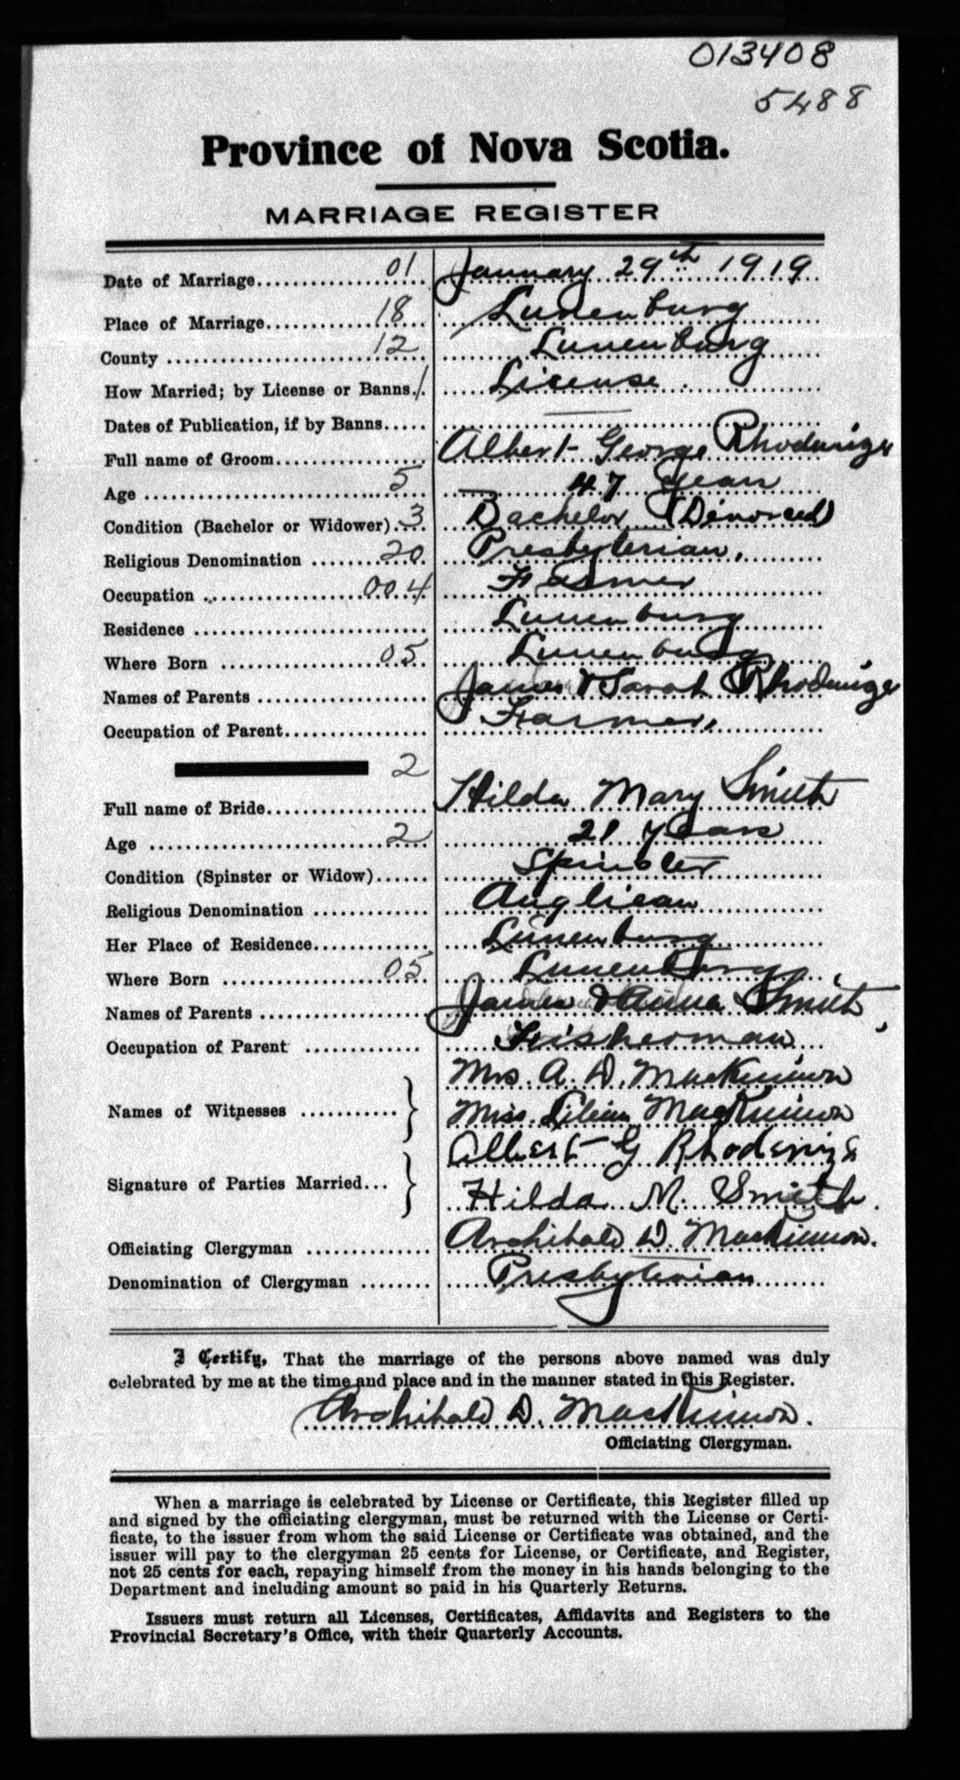 013408
5488
Province of Nova Scotia.
MARRIAGE REGISTER
Date of Marriage 01 January 29th 1919
Place of Marriage 18 Lunenburg
County 12 Lunenburg
How Married; by License or Banns. 1 License.
Dates of Publication, if by Banns —
Full name of Groom Albert George Rhodenizer
Age 5 47 years
Condition (Bachelor or Widower) 3 Bachelor (Divorced)
Religious Denomination 20 Presbyterian.
Occupation 004 Farmer
Residence Lunenburg
Where Born 05 Lunenburg
Names of Parents James & Sarah Rhodenizer
Occupation of Parent Farmer.
2
Full name of Bride Hilda Mary Smith
Age 2 21 years
Condition (Spinster or Widow) Spinster
Religious Denomination Anglican
Her Place of Residence Lunenburg
Where Born 05 Lunenburg
Names of Parents James & Anna Smith
Occupation of Parent Fisherman
Names of Witnesses } Mrs. A. D. MacKinnon
Miss Lilian MacKinnon
Signature of Parties Married } Albert G Rhodenizer
Hilda M. Smith.
Officiating Clergyman Archibald D. MacKinnon.
Denomination of Clergyman Presbyterian
I Certify, That the marriage of the persons above named was duly
celebrated by me at the time and place and in the manner stated in this Register.
Archibald D. MacKinnon.
Officiating Clergyman.
When a marriage is celebrated by License or Certificate, this Register filled up
and signed by the officiating clergyman, must be returned with the License or Certi-
ficate, to the issuer from whom the said License or Certificate was obtained, and the
issuer will pay to the clergyman 25 cents for License, or Certificate, and Register,
not 25 cents for each, repaying himself from the money in his hands belonging to the
Department and including amount so paid in his Quarterly Returns.
Issuers must return all Licenses, Certificates, Affidavits and Registers to the
Provincial Secretary's Office, with their Quarterly Accounts.